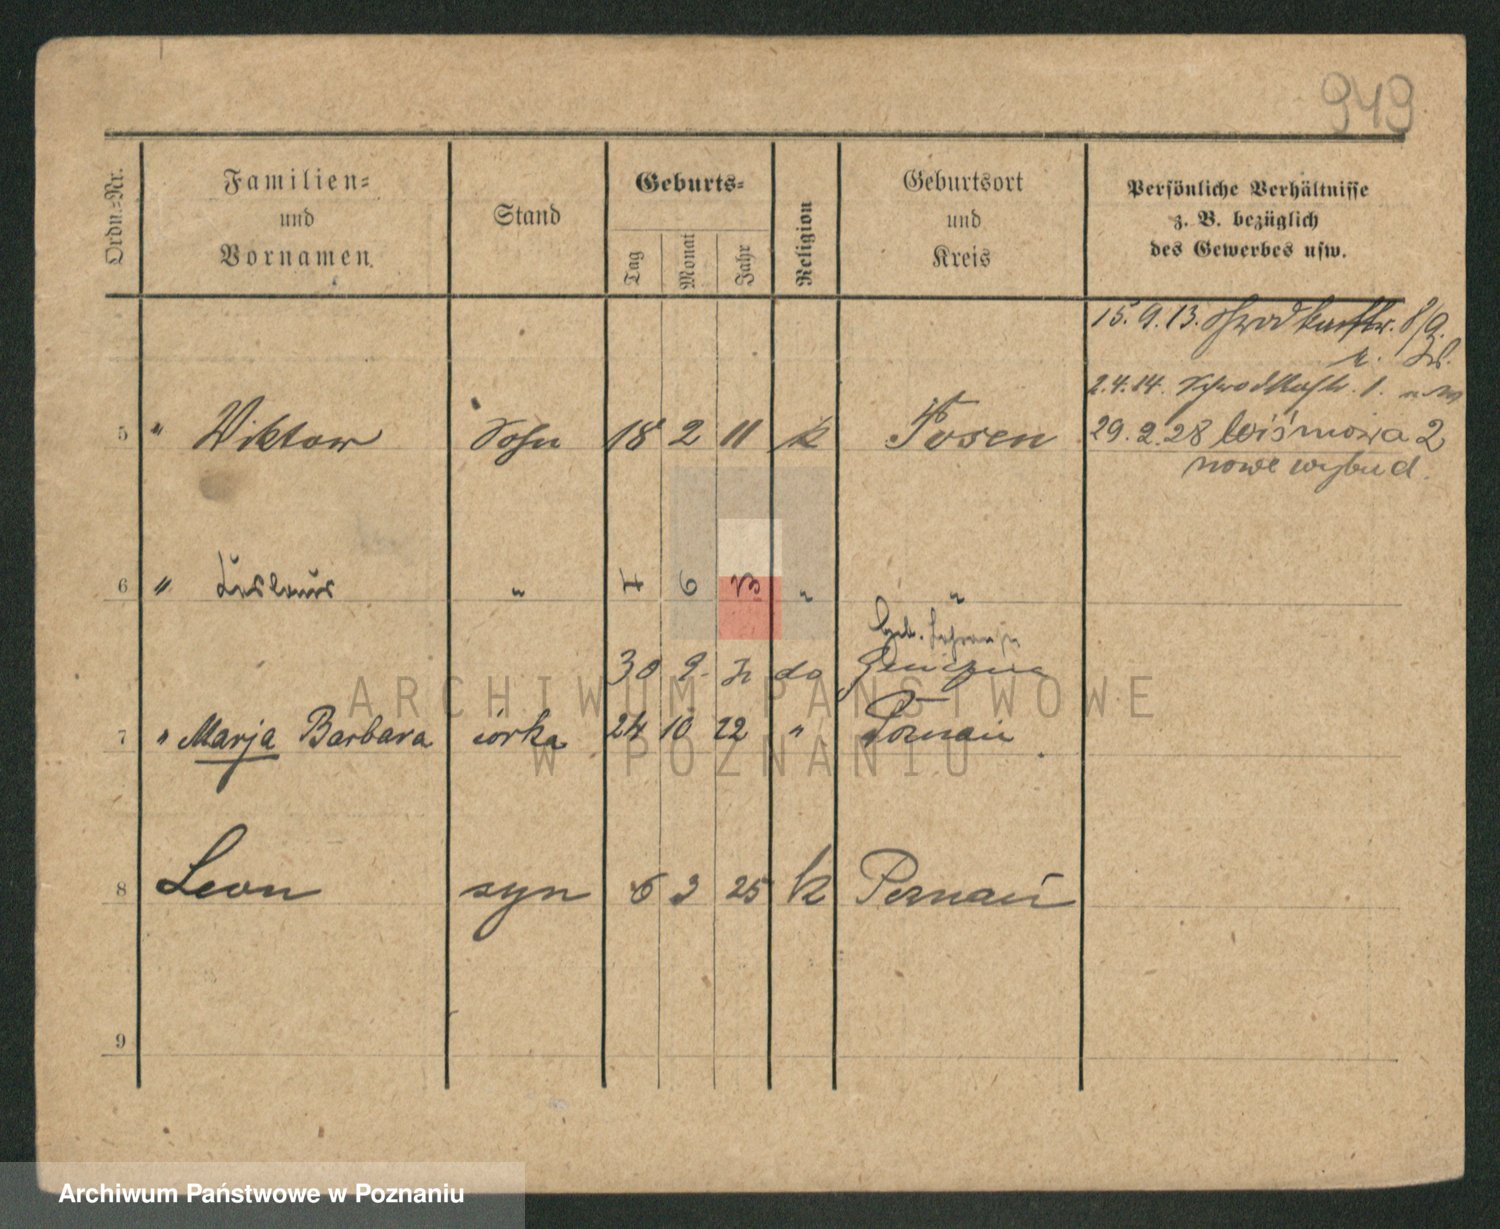 949
Ordn.-Nr.
Familien-
und
Vornamen
Stand
Geburts-
Tag
Monat
Jahr
Religion
Geburtsort
und
Kreis
Persönliche Verhältnisse
z. B. bezüglich
des Gewerbes usw.
15.9.13. 8/9.
2.4.14. 1.
5 " Viktor Sohn 18 2 11 k Posen 29.2.28 Wiśniowa 2
nowe wybud.
6 " " 4 6 13 " "
geb.
30 9. do
7 " Marja Barbara córka 24 10 22 " Poznań
8 Leon syn 6 3 25 k Poznań
9
ARCHIWUM PAŃSTWOWE
W POZNANIU
Archiwum Państwowe w Poznaniu